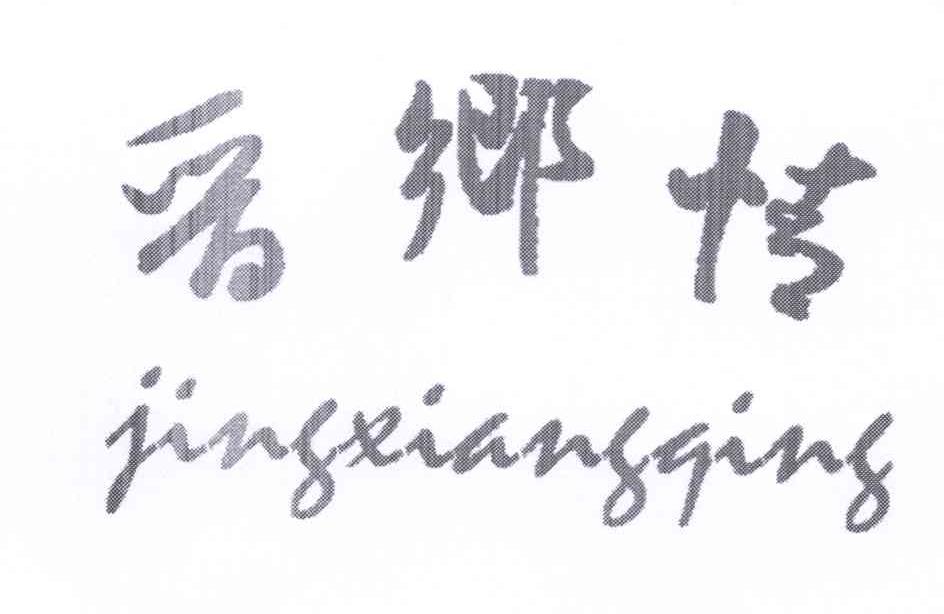 晋鄉情
jingxiangqing